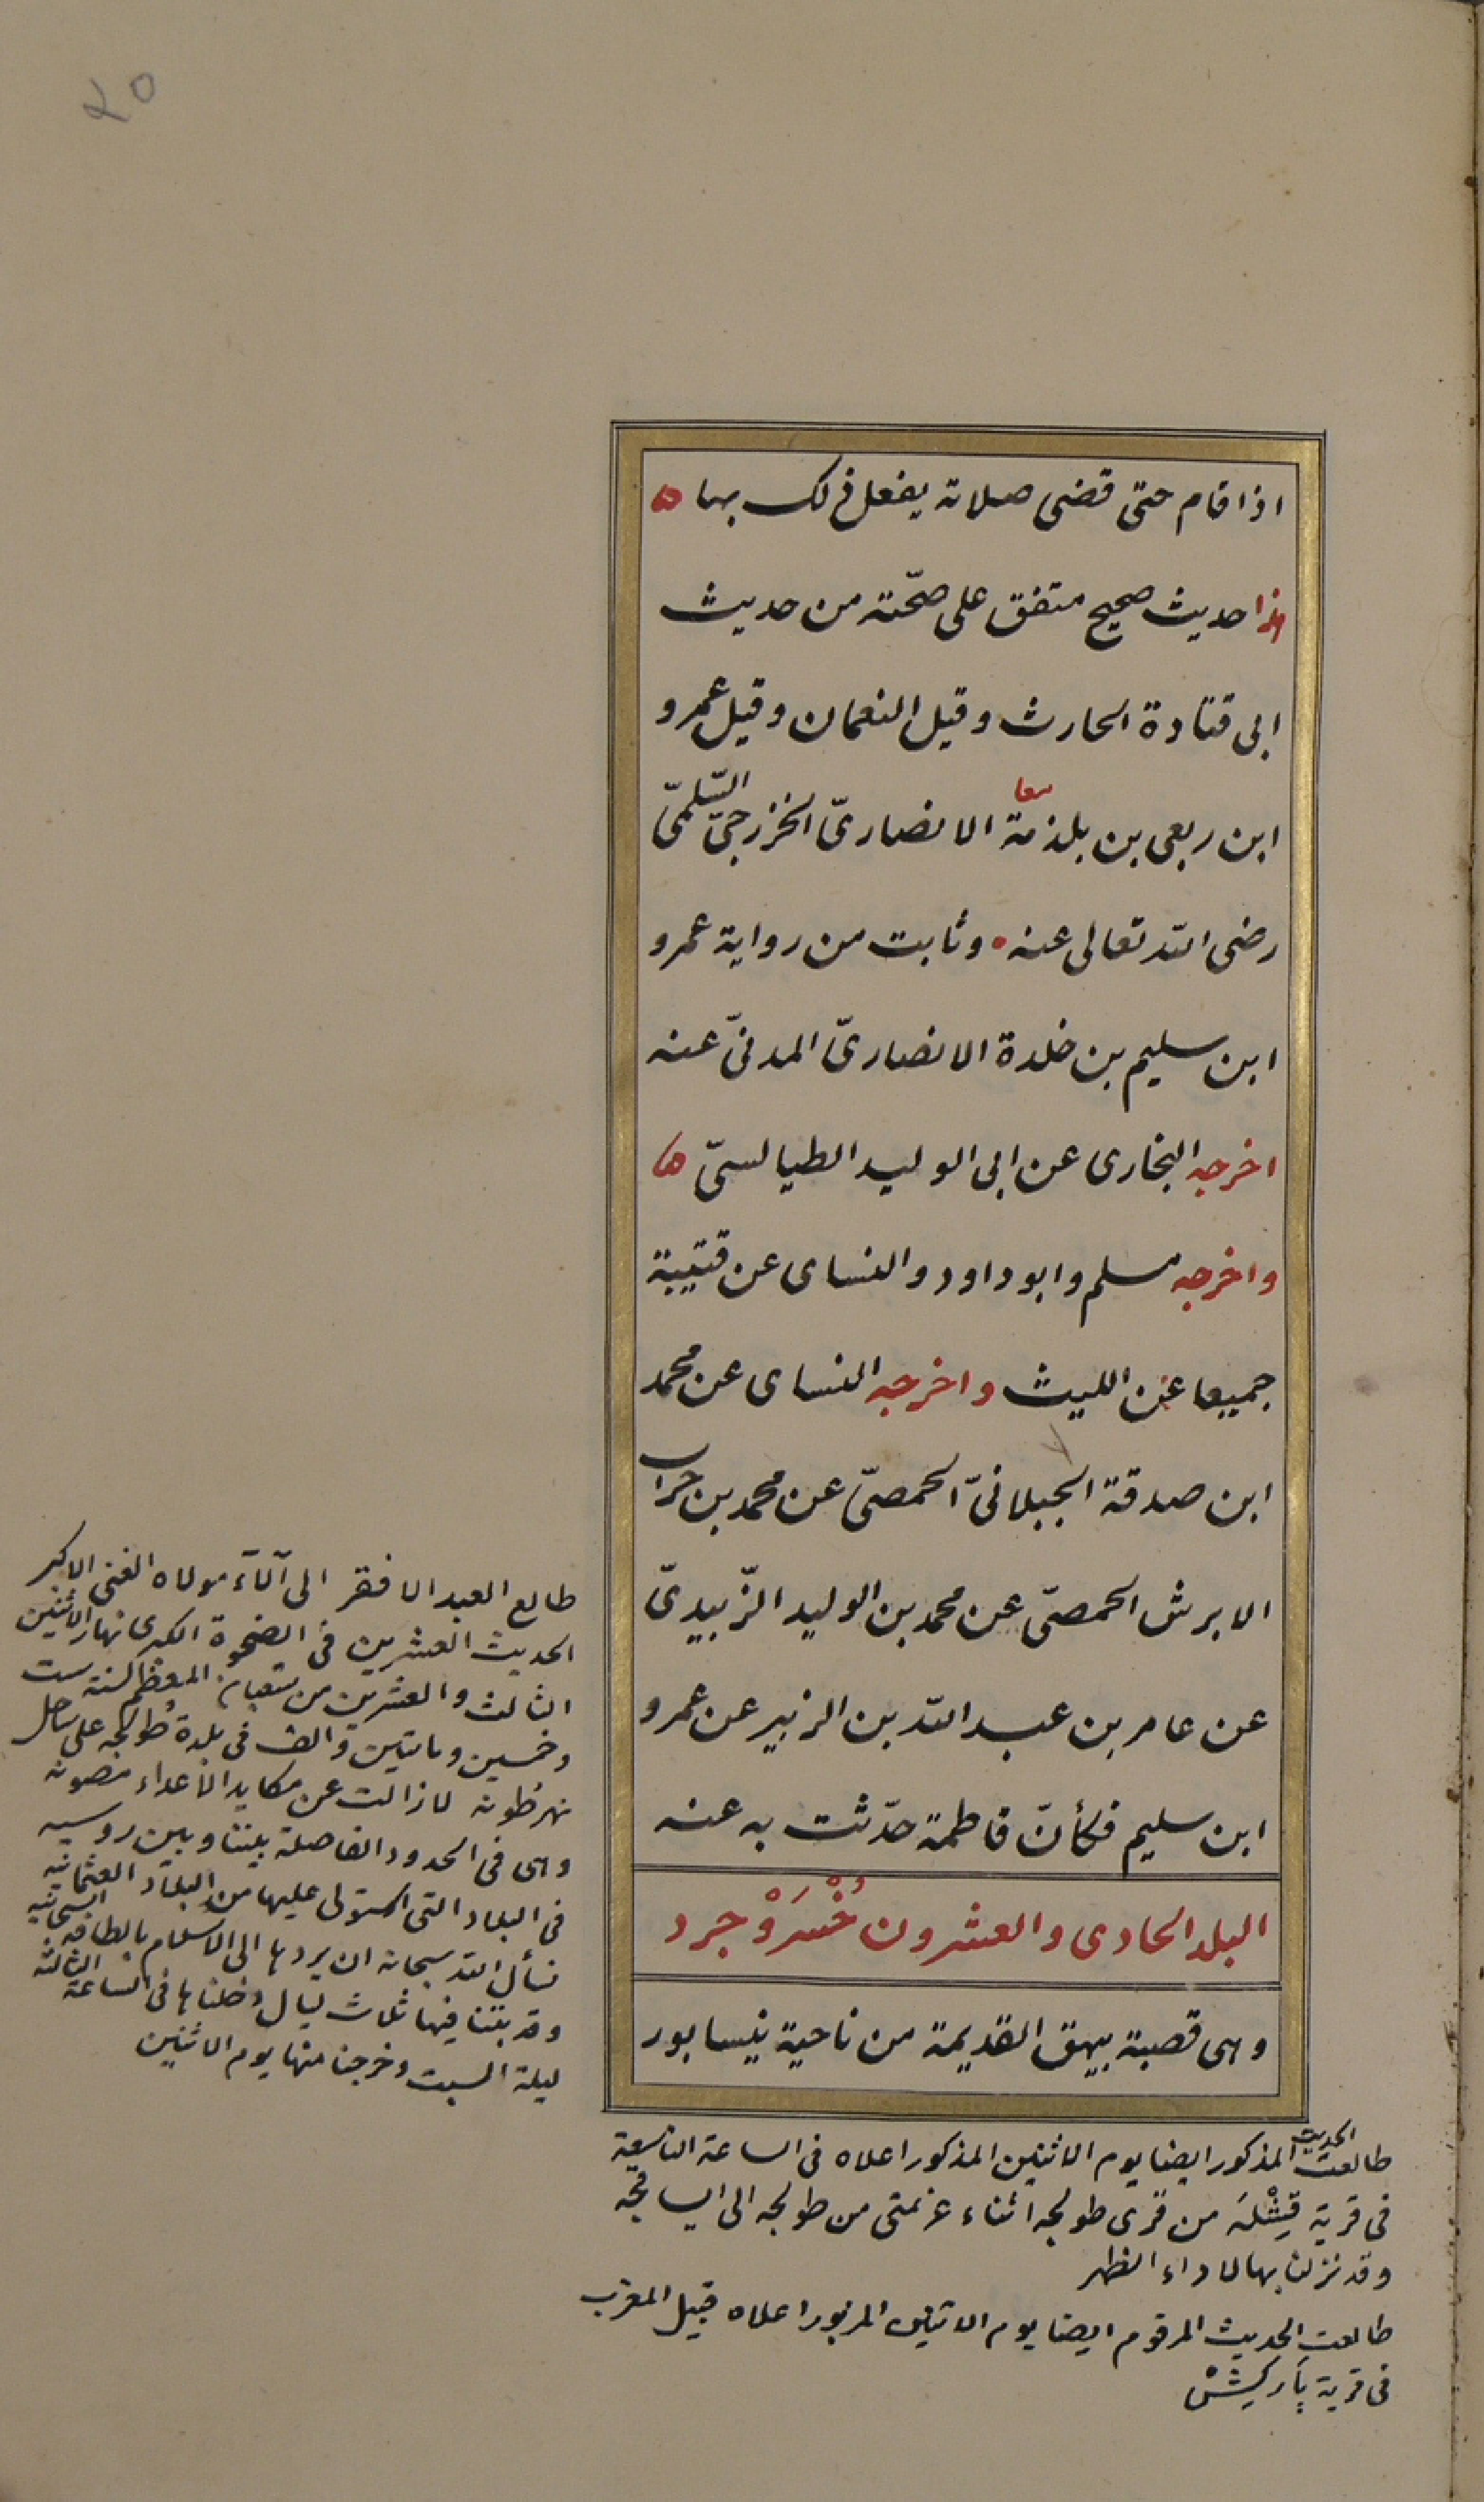 ٤٥
اذا قام حتى قضى صلاته يفعل ذلك بها ه
هذا حديث صحيح متفق على صحّته من حديث
ابى قتادة الحارث وقيل النعمان وقيل عمرو
ابن ربعى بن بلذمة معا الانصارىّ الخزرجىّ السّلمىّ
رضى الله تعالى عنه . وثابت من رواية عمرو
ابن سليم بن خلدة الانصارىّ المدنىّ عنه
اخرجه البخارى عن ابى الوليد الطيالسىّ ه
واخرجه مسلم وابو داود والنساى عن قتيبة
جميعا عن الليث واخرجه النساى عن محمد
ابن صدقة الجبلانىّ الحمصىّ عن محمد بن حرب
الابرش الحمصىّ عن محمد بن الوليد الزّبيدىّ
عن عامر بن عبد الله بن الزبير عن عمرو
ابن سليم فكأنّ فاطمة حدّثت به عنه
البلد الحادى والعشرون خُسْرَوْجرد
وهى قصبة بيهق القديمة من ناحية نيسابور
طالع العبد الافقر الى آلآء مولاه الغنى الاكبر
الحديث العشرين فى الضحوة الكبرى نهار الاثنين
الثالث والعشرين من شعبان المعظم لسنة ست
وخمسين ومائتين والف فى بلدة طولجه على ساحل
نهر طونه لا زالت عن مكايد الاعداء مصونه
وهى فى الحدود الفاصلة بيننا وبين روسيه
فى البلاد التى استولى عليها من البلاد العثمانيه
نسأل الله سبحانه ان يردها الى الاسلام بالطافه السبحانيه
وقد بتنا فيها ثلاث ليال دخلناها فى الساعة الثالثة
ليلة السبت وخرجنا منها يوم الاثنين
طالعت الحديث المذكور ايضا يوم الاثنين المذكور اعلاه فى الساعة التاسعة
فى قرية قِشْلَه من قرى طولجه اثناء عزيمتى من طولجه الى ايساقجه
وقد نزلنا بها لاداء الظهر
طالعت الحديث المرقوم ايضا يوم الاثنين المزبور اعلاه قبيل المغرب
فى قرية پاركيشْ